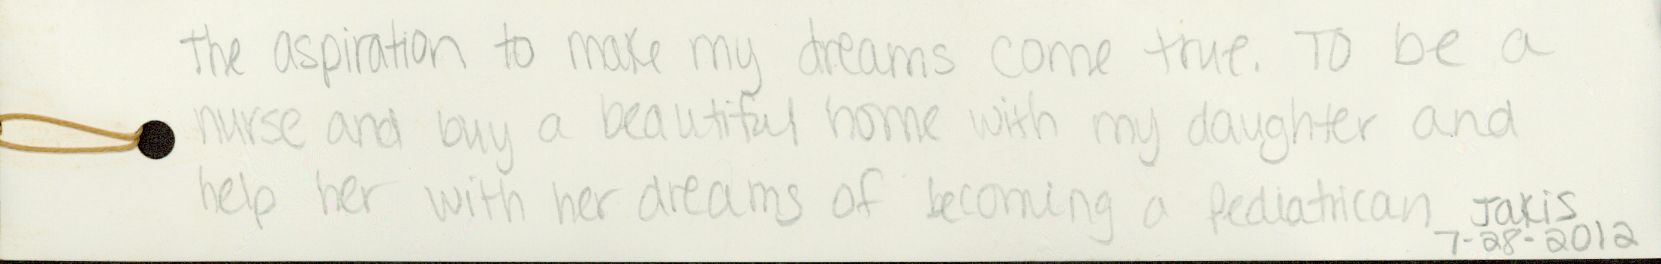 the aspiration to make my dreams come true. To be a
nurse and buy a beautiful home with my daughter and
help her with her dreams of becoming a Pediatrican Jakis
7-28-2012